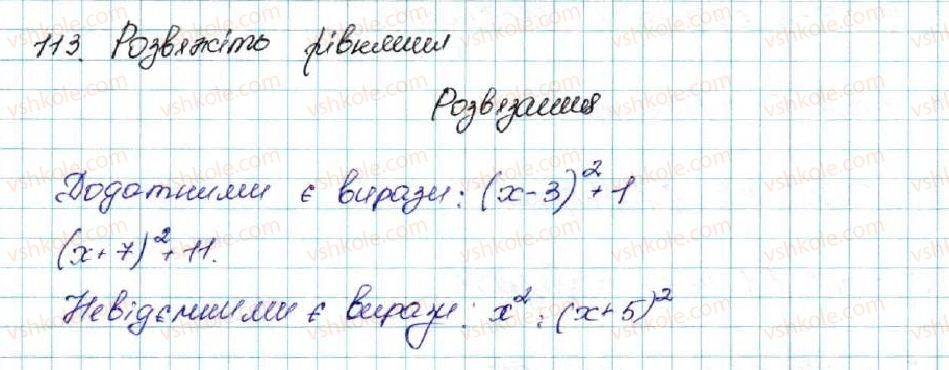 113. Розвяжіть рівняння
Розвязання
Додатними є вирази: (x-3)²+1
(x+7)²+11.
Невідємними є вирази: x²; (x+5)²